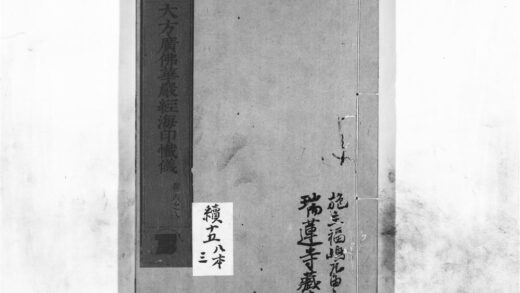 施主福嶋
瑞蓮寺藏
續十五
八本
三
大方廣佛華嚴經海印懺儀